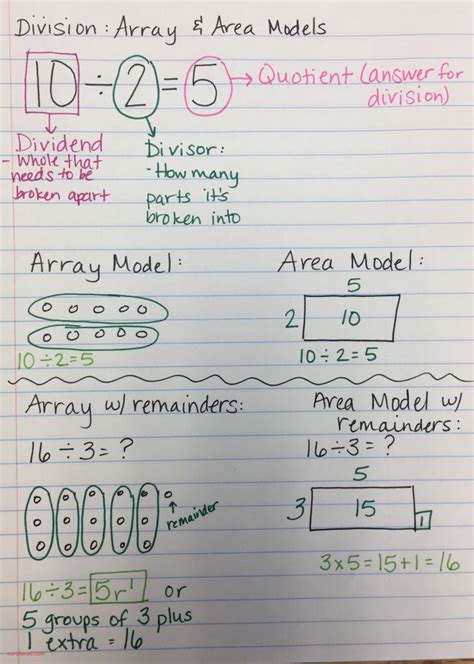 Division: Array & Area Models
10 ÷ 2 = 5 → Quotient (answer for
division)
Dividend
- Whole that
needs to be
broken apart
Divisor:
- How many
parts it's
broken into
Array Model:
10 ÷ 2 = 5
Area Model:
5
2
10
10 ÷ 2 = 5
Array w/ remainders:
16 ÷ 3 = ?
remainder
16 ÷ 3 = 5r1 or
5 groups of 3 plus
1 extra = 16
Area Model w/
remainders:
16 ÷ 3 = ?
5
3
15
1
3x5 = 15+1 = 16